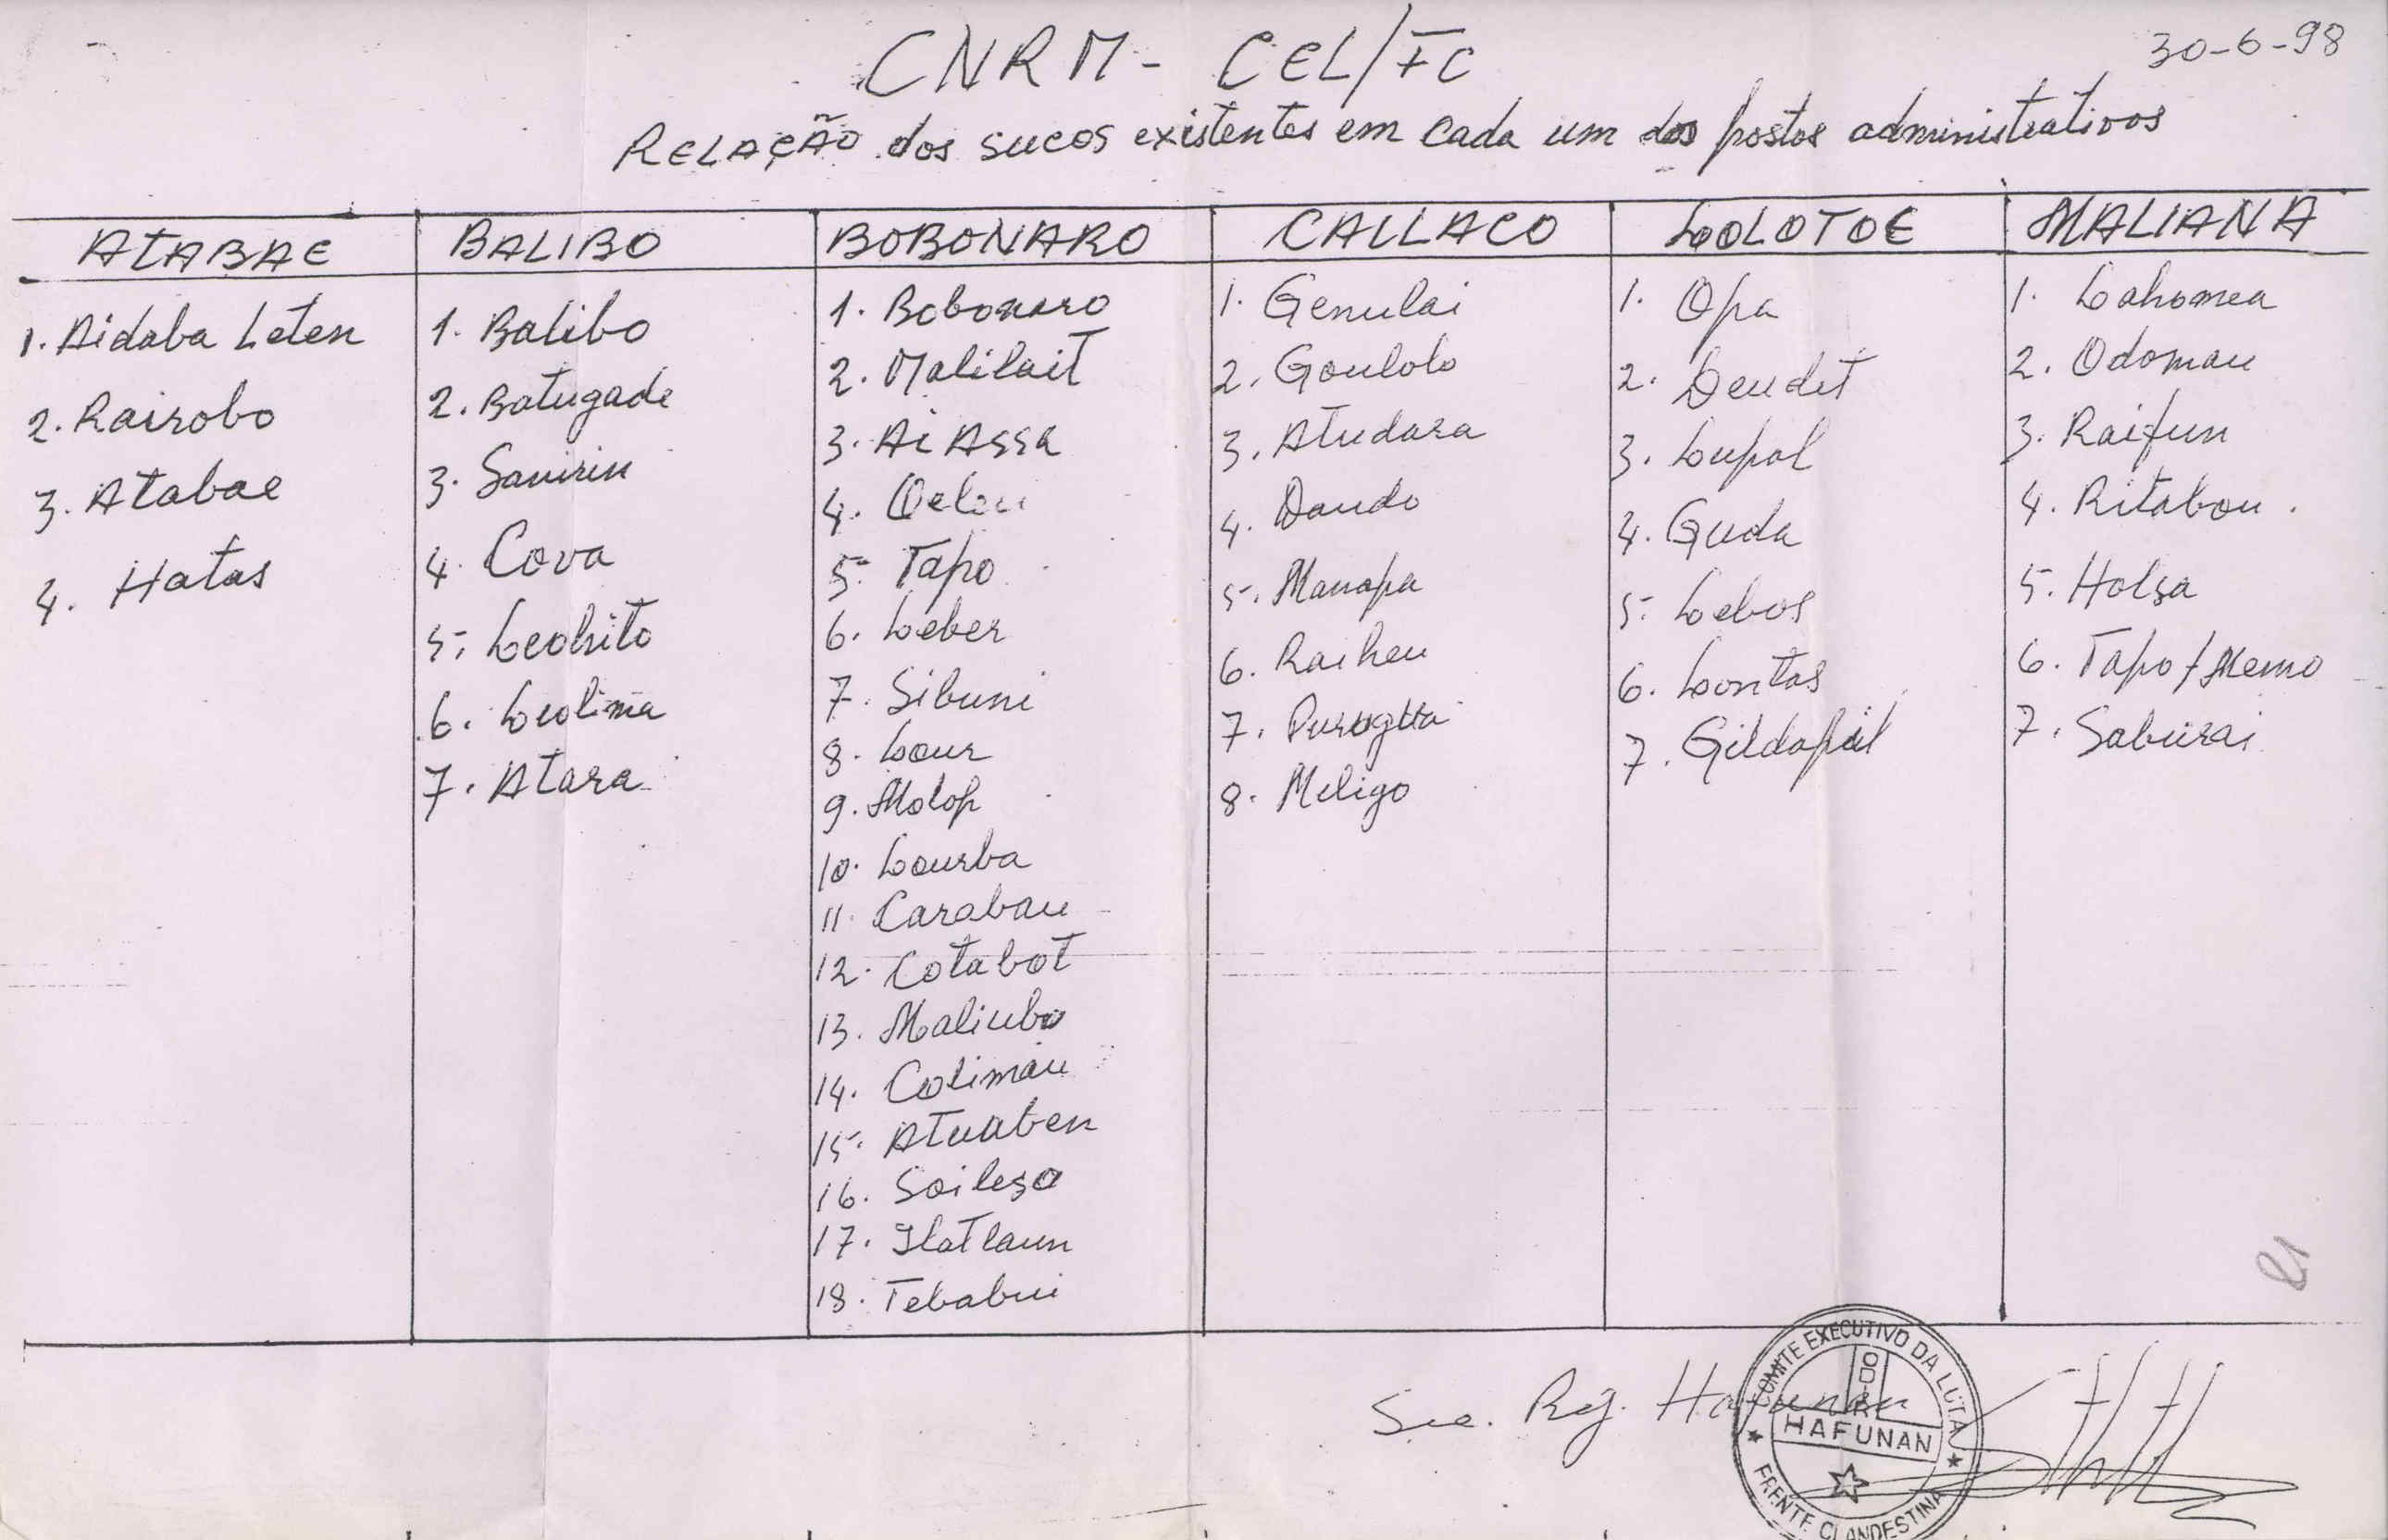 30-6-98
CNRM - CEL/FC
RELAÇÃO dos sucos existentes em cada um dos postos administrativos
ATABAE
1. Aidaba Leten
2. Rairobo
3. Atabae
4. Hatas
BALIBO
1. Balibo
2. Batugade
3. Sanirin
4. Cova
5. Leohito
6. Leolima
7. Atara
BOBONARO
1. Bobonaro
2. Malilait
3. Ai Assa
4. Oeleu
5. Tapo
6. Leber
7. Sibuni
8. Lour
9. Molop
10. Lourba
11. Carabau
12. Cotabot
13. Maliubo
14. Colimau
15. Atuaben
16. Soileso
17. Ilatlaun
18. Tebabui
CAILACO
1. Genulai
2. Goulolo
3. Atudara
4. Daudo
5. Manapa
6. Raiheu
7.
8. Meligo
LOLOTOE
1. Opa
2. Deudet
3. Lupal
4. Guda
5. Lebos
6. Lontas
7. Gildapil
MALIANA
1. Lahomea
2. Odomau
3. Raifun
4. Ritabou
5. Holsa
6. Tapo/Memo
7. Saburai
21
Sec. Reg. Hafunan
COMITE EXECUTIVO DA LUTA
ODIR
HAFUNAN
FRENTE CLANDESTINA